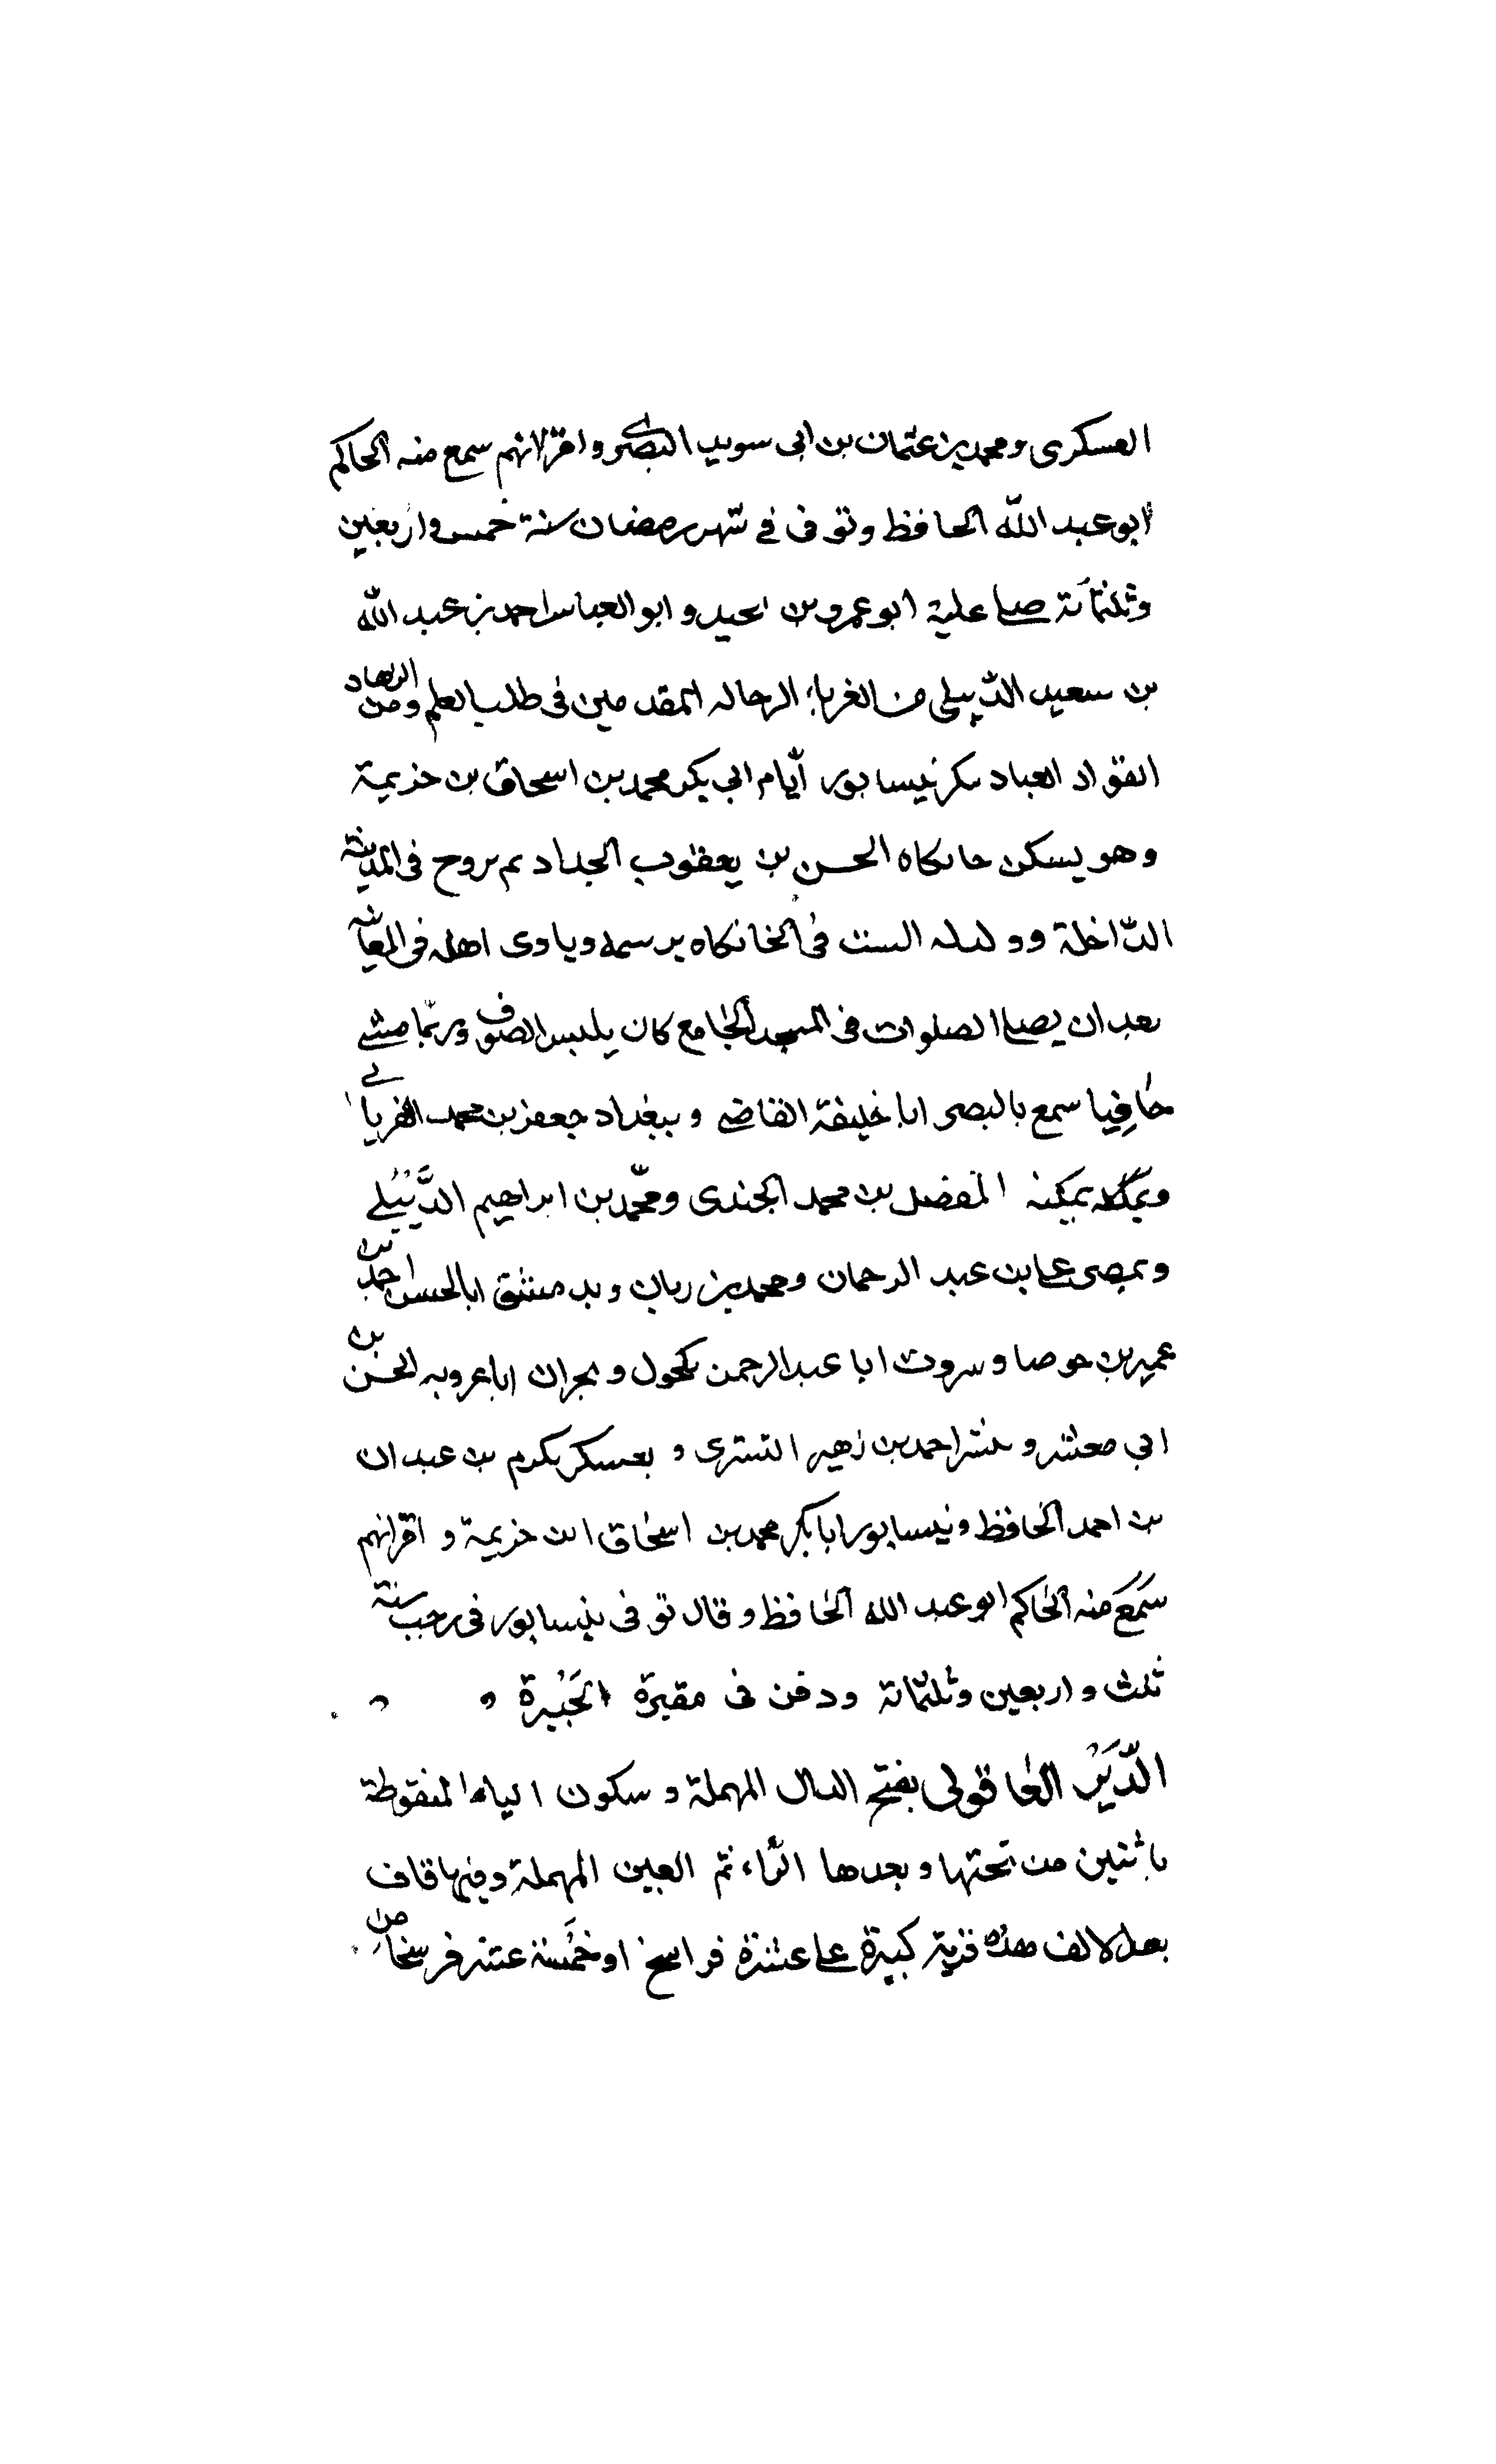 العسكرى ومحمد بن عثمان بن ابى سويد البصرى واقرانهم سمع منه الحاكم
ابو عبد الله الحافظ وتوفى فى شهر رمضان سنة خمس واربعين
وثلثمائة صلى عليه ابو عمرو بن نجيد وابو العباس احمد بن عبد الله
بن سعيد الديبلى من الغرباء الرحاله المقدمين فى طلب العلم ومن الزهاد
الفقراء العباد سكن نيسابور ايام ابى بكر محمد بن اسحاق بن خزيمة
وهو يسكن خانكاه الحسن بن يعقوب الحداد ثم تزوج فى المدينة
الداخلة وولد له البيت فى الخانكاه برسمه وياوى اهله فى المدينة
بعد ان يصلى الصلوات فى المسجد الجامع كان يلبس الصوف وربما مشى
حافيا سمع بالبصره ابا خليفة القاضى وببغداد جعفر بن محمد الفريابى
وبمكة المفضل بن محمد الجندى ومحمد بن ابراهيم الدَّيْبُلى
وبمصر على بن عبد الرحمان ومحمد بن زبان وبدمشق ابا الحسن احمد بن
عمير بن حوصا وببيروت ابا عبد الرحمن مكحول وبحران ابا عروبه الحسن بن
ابى معشر وبتستر احمد بن زهير التسترى وبعسكر مكرم بن عبدان
بن احمد الحافظ ونيسابور ابا بكر محمد بن اسحاق ابن خزيمة واقرانهم
سمع منه الحاكم ابو عبد الله الحافظ وقال توفى بنيسابور فى رجب سنة
ثلث واربعين وثلثمائة ودفن فى مقبرة الحيرة
الدَّيْر العاقولى بفتح الدال المهملة وسكون الياء المنقوطة
باثنين من تحتها وبعدها الراء ثم العين المهملة وفيها قاف
بعد الالف هذه قرية كبيرة على عشرة فراسخ او خمسة عشر فرسخا من